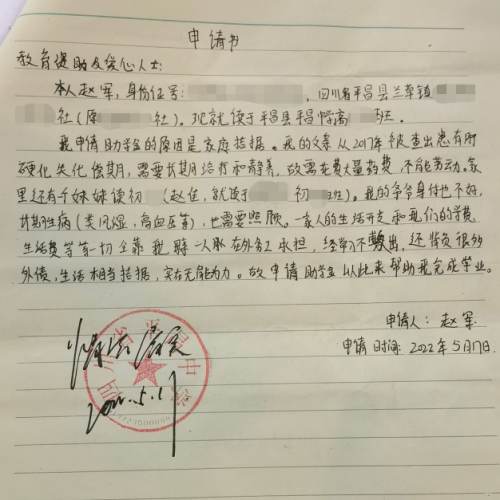 申请书
教育援助及爱心人士:
本人赵军,身份证号: ,四川省平昌县兰草镇
社(原 社)。现就读于平昌县平昌 高 班。
我申请助学金的原因是家庭拮据。我的父亲从2017年被查出患有肝
硬化失代偿期,需要长期治疗和静养,故需花费大量药费,不能劳动。家
里还有个妹妹读初 (赵佳,就读于 初 班)。我的爷爷身体也不好,
长期生病(类风湿、高血压等),也需要照顾。一家人的生活开支和我们的学费、
生活费等等一切全靠我 一人 在外务工承担,经常入不敷出,还背负很多
外债,生活相当拮据,实在无能为力。故申请助学金以此来帮助我完成学业。
申请人:赵军
申请时间:2022年5月17日.
情况属实
2022.5.17